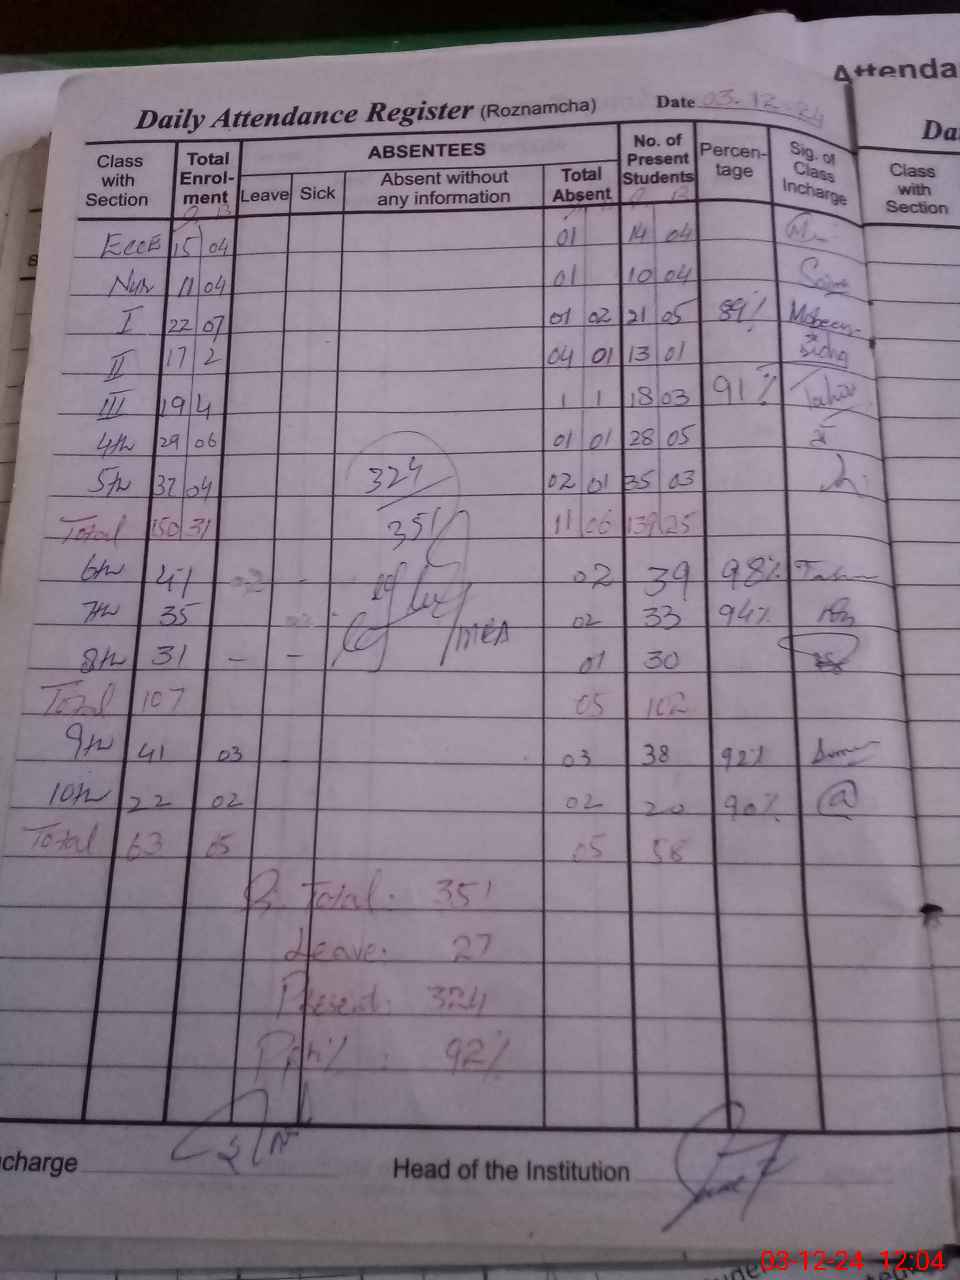 Attenda
Daily Attendance Register (Roznamcha) Date 03-12-24
Da
Class with Section Total Enrolment ABSENTEES Leave Sick Absent without any information Total Absent No. of Present Students Percentage Sig. of Class Incharge
Class with Section
EccE 15 04 01 14 04
Nur 11 04 01 10 04
I 22 07 01 02 21 05 89%
II 17 2 04 01 13 01
III 19 4 1 1 18 03 91%
4th 29 06 01 01 28 05
5th 37 04 324 02 01 35 03
Total 150 31 351 11 06 139 25
6th 41 02 - 02 39 98%
7th 35 02 33 94%
8th 31 - - 01 30
Total 107 05 102
9th 41 03 03 38 92%
10th 22 02 02 20 90%
Total 63 05 05 58
Total: 351
Leave: 27
Present: 324
92%
charge
Head of the Institution
03-12-24 12:04